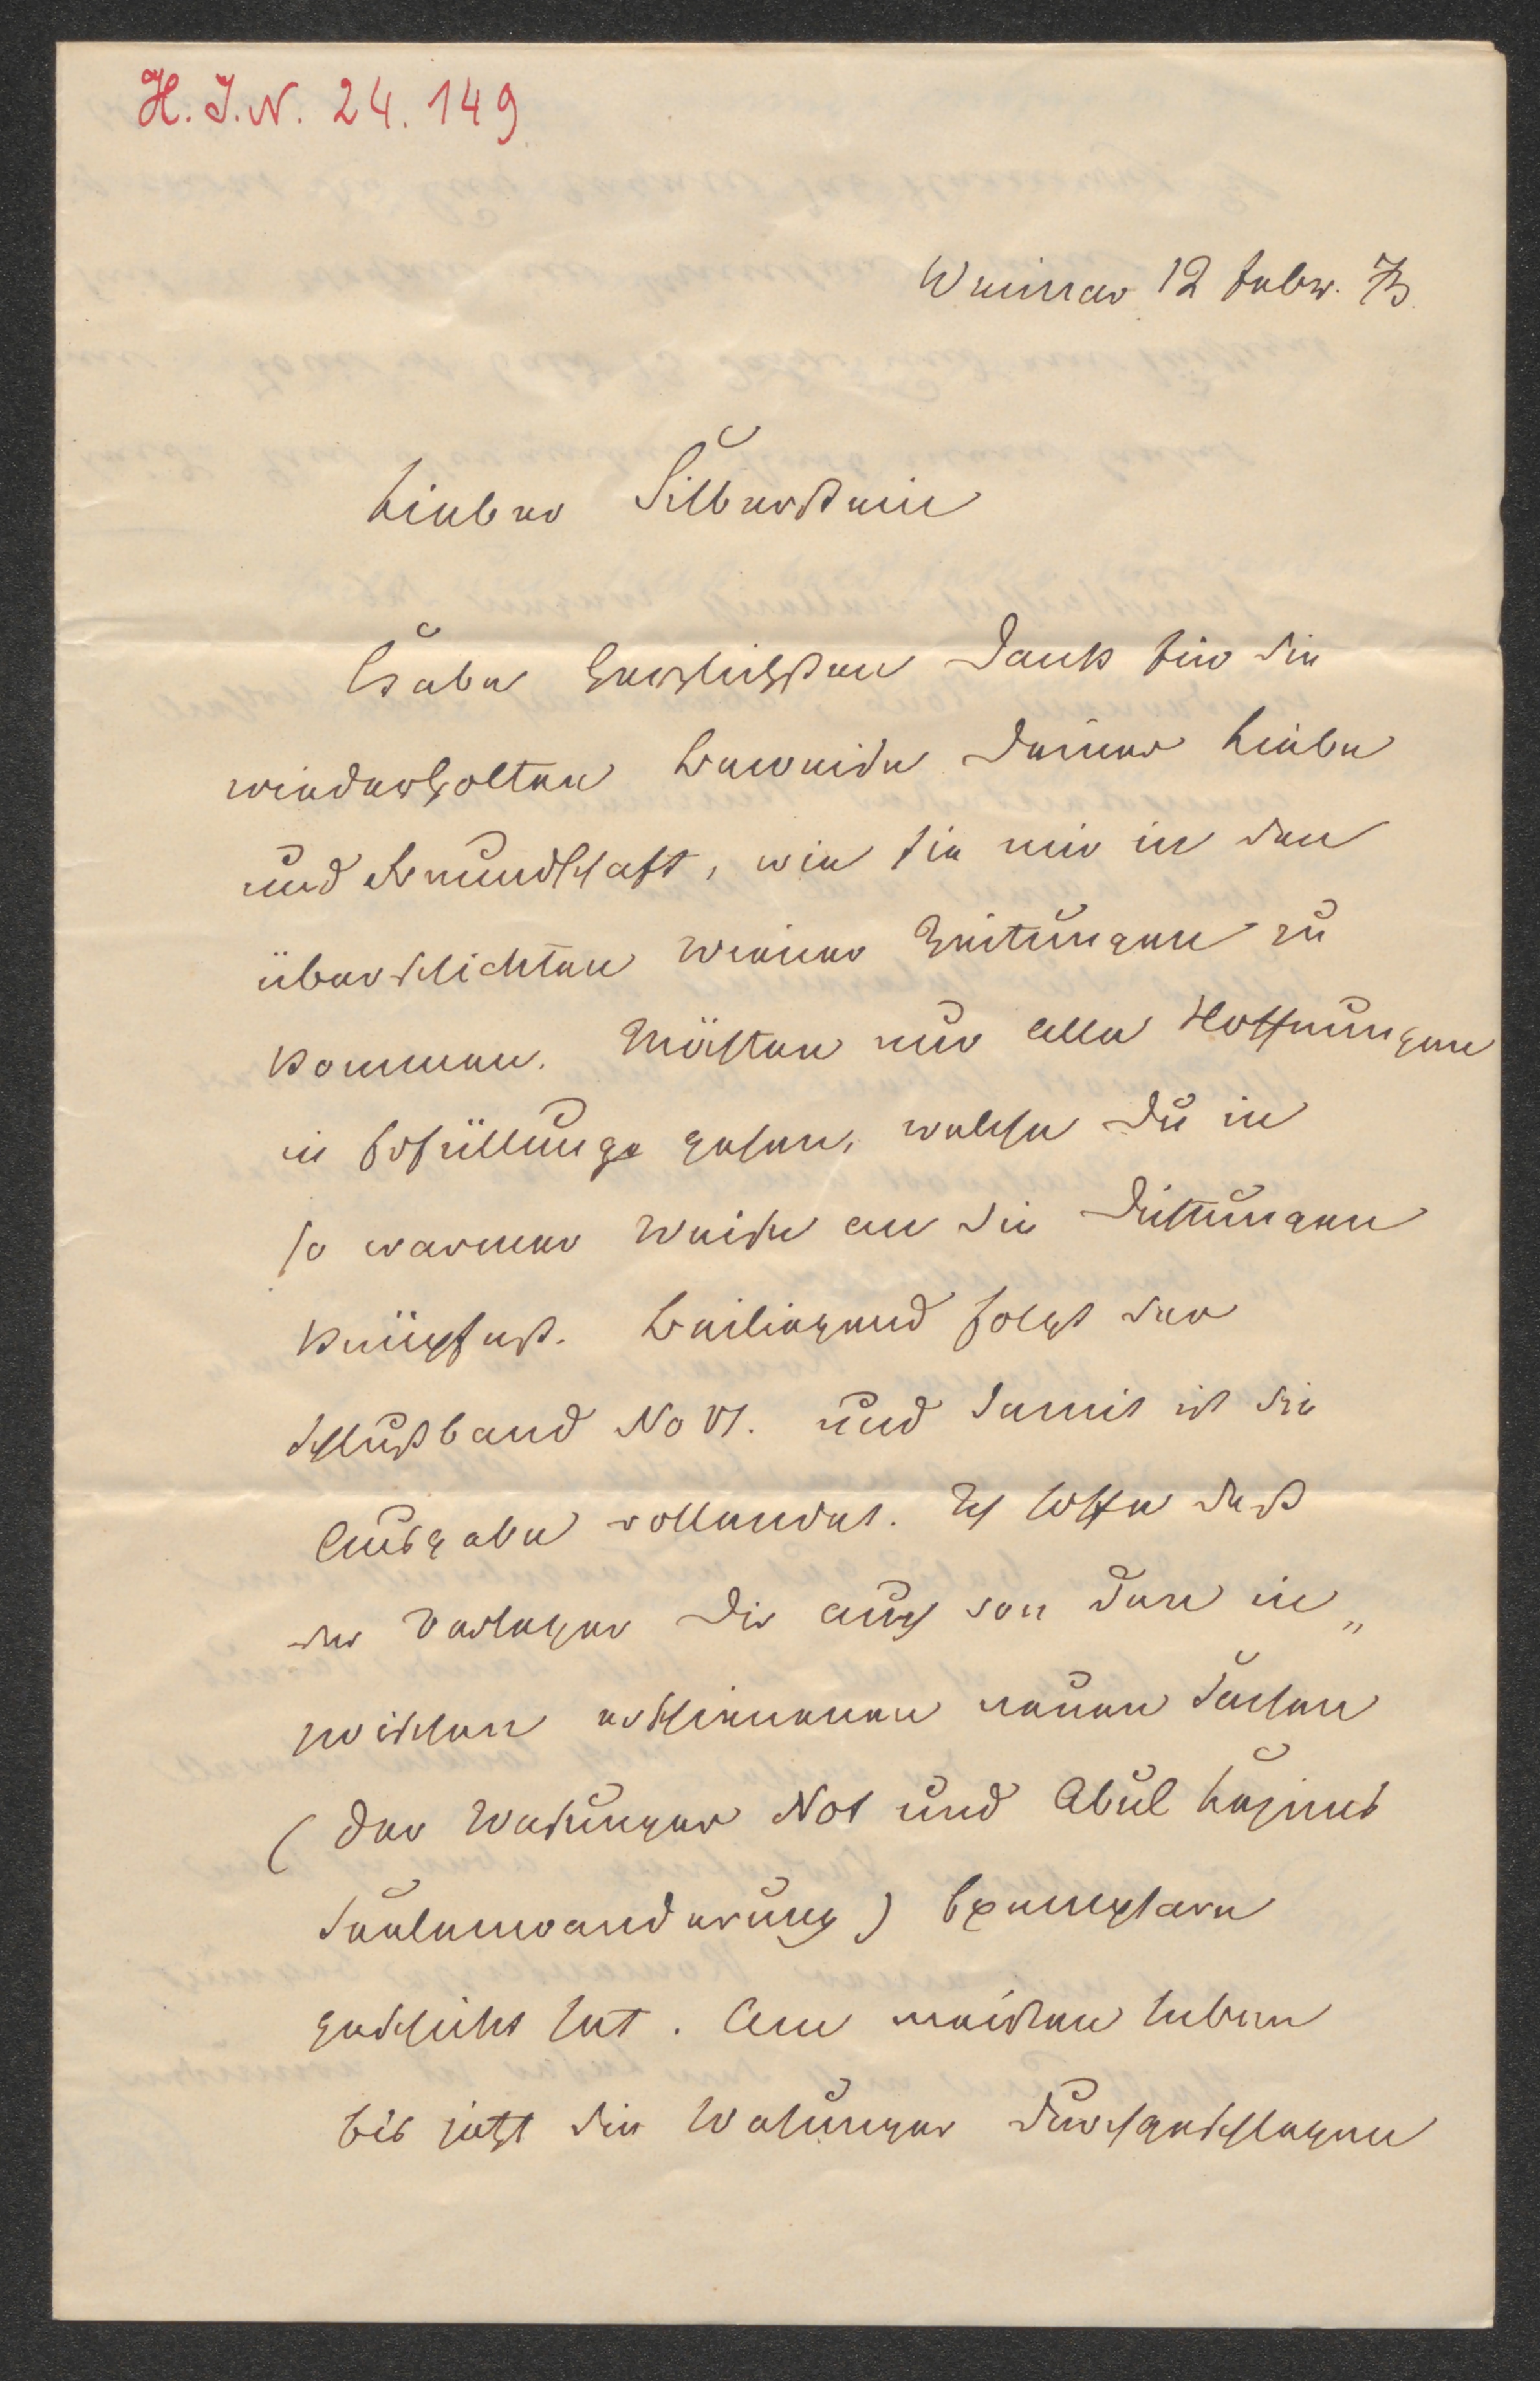 H. I. N. 24.149
Weimar 12 Febr. 73
Lieber Silberstein
Habe herzlichsten Dank für die
wiederholten Beweise Deiner Liebe
und Freundschaft, wie sie mir in den
überschickten Wiener Zeitungen zu
kommen. Möchten nur alle Hoffnungen
in Erfüllung gehen, welche Du in
so warmer Weise an die Dichtungen
knüpfest. Beiliegend folgt der
Schlußband No VI. und damit ist die
Ausgabe vollendet. Ich hoffe daß
der Verleger Dir auch von den in„
zwischen erschienenen neuen Sachen
(Der Wasunger Not und Abul Kazims
Seelenwanderung) Exemplare
geschickt hat. Am meisten haben
bis jetzt die Wasunger durchgeschlagen